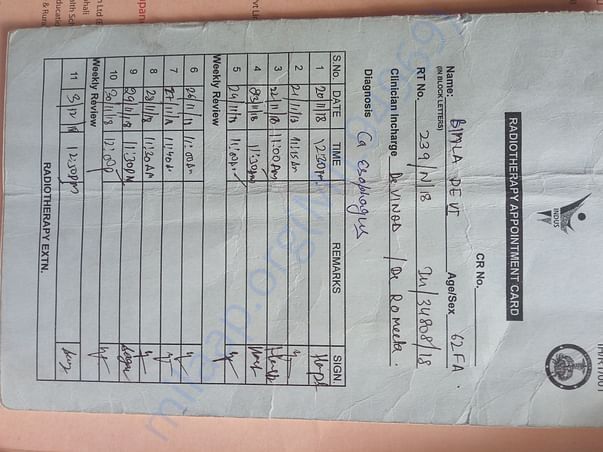 INDUS
RADIOTHERAPY APPOINTMENT CARD
CR No.
Name: BIMLA DEVI Age/Sex 62 FA.
(IN BLOCK LETTERS)
RT No. 239/N/18 In/34808/18
Clinician Incharge Dr VINOD / Dr Romeeta.
Diagnosis Ca Esophagus
S.No. DATE TIME REMARKS SIGN.
1 20/11/18 12:30pm
2 21/11/18 11:15Am
3 22/11/18 11:00Am
4 23/11/18 11:30pm
5 24/11/18 11:00Am
Weekly Review
6 26/11/18 11:00Am
7 27/11/18 11:40Am
8 28/11/18 11:30AM
9 29/11/18 11:30PM
10 30/11/18 12:00p
Weekly Review
11 3/12/18 12:30pm
RADIOTHERAPY EXTN.